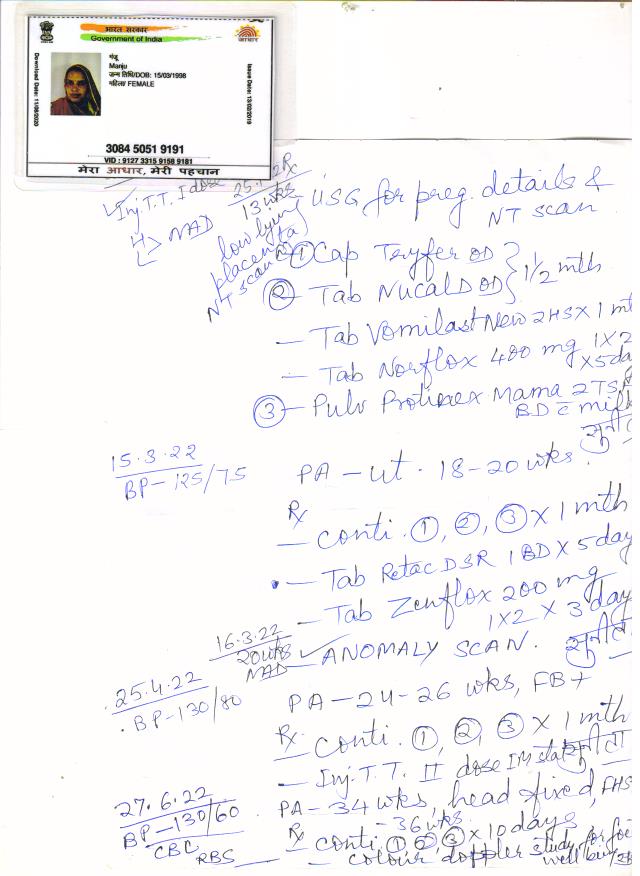 भारत सरकार
Government of India
आधार
Download Date: 11/08/2020
Issue Date: 13/02/2019
मंजू
Manju
जन्म तिथि/DOB: 15/03/1998
महिला/ FEMALE
3084 5051 9191
VID : 9127 3315 9158 9181
मेरा आधार, मेरी पहचान
Inj. T.T. I dose
13 wks
MAD
low lying
placenta
NT scan
Rx
USG for preg. details &
NT scan
① Cap Teryfer OD
② Tab Nucal D OD
1 1/2 mth
- Tab Vomilast New 2HS X 1 mt
- Tab Norflox 400 mg 1X2
X5da
③ - Pulv Protinex Mama 2 TS
BD c̄ mil
15.3.22
BP - 125/75
PA - ut. 18-20 wks.
Rx
- Conti. ①, ②, ③ X 1 mth
- Tab Retac DSR 1 BD X 5 day
- Tab Zenflox 200 mg
1X2 X 3 day
16.3.22
20 wks
MAD
- ANOMALY SCAN.
25.4.22
BP - 130/80
PA - 24-26 wks, FB+
Rx
- Conti. ①, ②, ③ X 1 mth
- Inj. T.T. II dose IM stat
27.6.22
BP - 130/60
CBC
RBS
PA - 34 wks, head fixed, FHS
- 36 wks
Rx
- Conti. ① ② ③ X 10 days
- colour doppler study for
well being